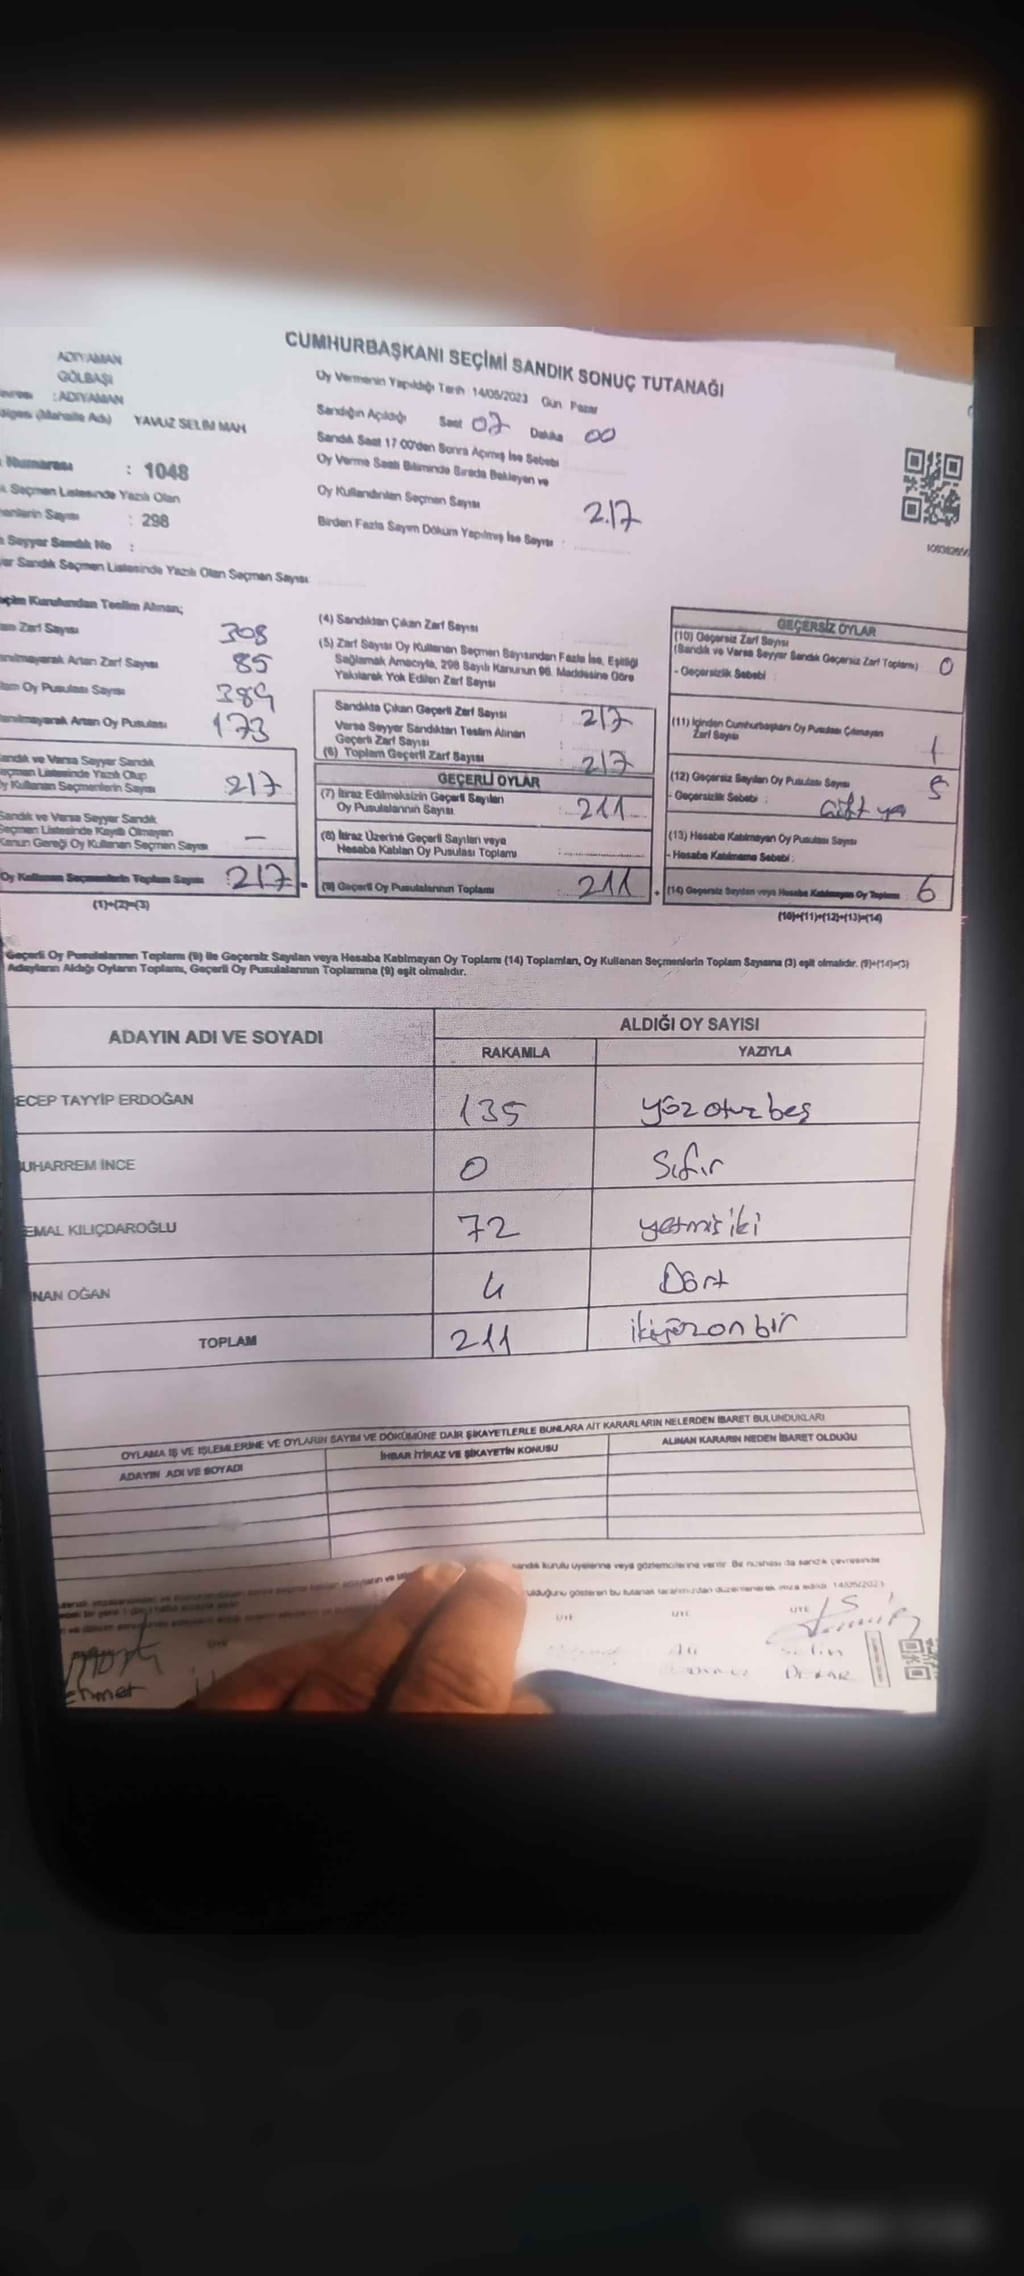 CUMHURBAŞKANI SEÇİMİ SANDIK SONUÇ TUTANAĞI
ADIYAMAN
GÖLBAŞI
: ADIYAMAN
(Mahalle Adı) YAVUZ SELİM MAH
Numarası : 1048
Seçmen Listesinde Yazılı Olan
Sayısı : 298
Seyyar Sandık No :
Sandık Seçmen Listesinde Yazılı Olan Seçmen Sayısı
Oy Vermenin Yapıldığı Tarih 14/05/2023 Gün Pazar
Sandığın Açıldığı Saat 07 Dakika 00
Sandık Saat 17 00'den Sonra Açılmış İse Sebebi
Oy Verme Saati Bitiminde Sırada Bekleyen ve
Oy Kullandırılan Seçmen Sayısı 217
Birden Fazla Sayım Döküm Yapılmış İse Sayısı :
Kurulundan Teslim Alınan;
Zarf Sayısı 308
Artan Zarf Sayısı 85
Oy Pusulası Sayısı 389
Artan Oy Pusulası 173
Sandık ve Varsa Seyyar Sandık
Seçmen Listesinde Yazılı Olup
Oy Kullanan Seçmenlerin Sayısı : 217
Sandık ve Varsa Seyyar Sandık
Seçmen Listesinde Kayıtlı Olmayan
Kanun Gereği Oy Kullanan Seçmen Sayısı —
Oy Kullanan Seçmenlerin Toplam Sayısı : 217
(1)+(2)=(3)
(4) Sandıktan Çıkan Zarf Sayısı :
(5) Zarf Sayısı Oy Kullanan Seçmen Sayısından Fazla İse, Eşitliği
Sağlamak Amacıyla, 298 Sayılı Kanunun 98. Maddesine Göre
Yakılarak Yok Edilen Zarf Sayısı
Sandıkta Çıkan Geçerli Zarf Sayısı : 217
Varsa Seyyar Sandıktan Teslim Alınan
Geçerli Zarf Sayısı :
(6) Toplam Geçerli Zarf Sayısı : 217
GEÇERLİ OYLAR
(7) İtiraz Edilmeksizin Geçerli Sayılan
Oy Pusulalarının Sayısı : 211
(8) İtiraz Üzerine Geçerli Sayılan veya
Hesaba Katılan Oy Pusulası Toplamı :
(9) Geçerli Oy Pusulalarının Toplamı 211
GEÇERSİZ OYLAR
(10) Geçersiz Zarf Sayısı
(Sandık ve Varsa Seyyar Sandık Geçersiz Zarf Toplamı) 0
- Geçersizlik Sebebi :
(11) İçinden Cumhurbaşkanı Oy Pusulası Çıkmayan
Zarf Sayısı 1
(12) Geçersiz Sayılan Oy Pusulası Sayısı 5
- Geçersizlik Sebebi :
(13) Hesaba Katılmayan Oy Pusulası Sayısı
- Hesaba Katılmama Sebebi :
(14) Geçersiz Sayılan veya Hesaba Katılmayan Oy Toplamı 6
(10)+(11)+(12)+(13)=(14)
Geçerli Oy Pusulalarının Toplamı (9) ile Geçersiz Sayılan veya Hesaba Katılmayan Oy Toplamı (14) Toplamları, Oy Kullanan Seçmenlerin Toplam Sayısına (3) eşit olmalıdır. (9)+(14)=(3)
Adayların Aldığı Oyların Toplamı, Geçerli Oy Pusulalarının Toplamına (9) eşit olmalıdır.
ADAYIN ADI VE SOYADI ALDIĞI OY SAYISI
RAKAMLA YAZIYLA
ECEP TAYYİP ERDOĞAN 135 yüz otuz beş
UHARREM İNCE 0 Sıfır
EMAL KILIÇDAROĞLU 72 yetmiş iki
NAN OĞAN 4 Dört
TOPLAM 211 ikiyüz on bir
OYLAMA İŞ VE İŞLEMLERİNE VE OYLARIN SAYIM VE DÖKÜMÜNE DAİR ŞİKAYETLERLE BUNLARA AİT KARARLARIN NELERDEN İBARET BULUNDUKLARI
ADAYIN ADI VE SOYADI İHBAR İTİRAZ VE ŞİKAYETİN KONUSU ALINAN KARARIN NEDEN İBARET OLDUĞU
sandık kurulu üyelerine veya gözlemcilerine verilir. Bir nüshası da sandık çevresinde
olduğunu gösteren bu tutanak tarafımızdan düzenlenerek imza edildi. 14/05/2023
ÜYE ÜYE ÜYE ÜYE